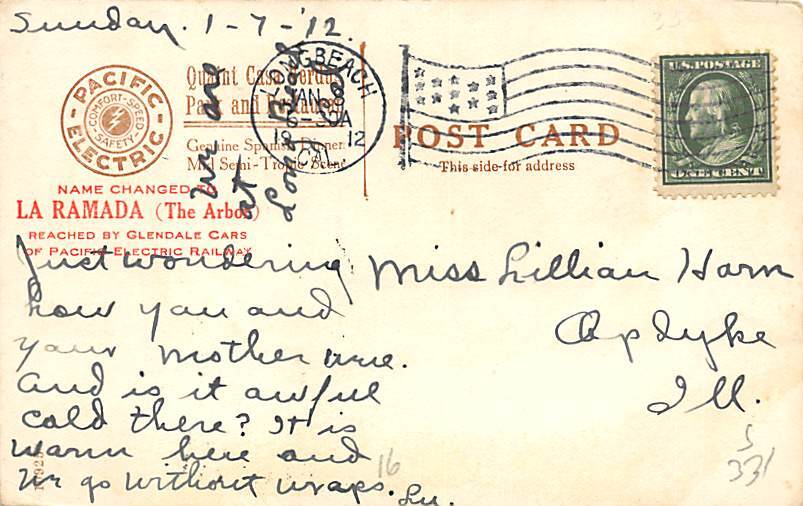 Sunday. 1-7-'12.
PACIFIC ELECTRIC
COMFORT-SPEED-SAFETY-
Quaint Casa Verdugo
Park and
Genuine Spanish Dinner
Mid Semi-Tropic Scene
NAME CHANGED TO
LA RAMADA (The Arbor)
REACHED BY GLENDALE CARS
OF PACIFIC ELECTRIC RAILWAY
We are
at
Long Beach
LONG BEACH
JAN
6-30A
1912
CAL
POST CARD
This side for address
U.S. POSTAGE
ONE CENT
Just wondering
how you and
your mother are.
And is it awful
cold there? It is
warm here and
we go without wraps. Lu.
Miss Lillian Harn
Opdyke
Ill.
16
5
331